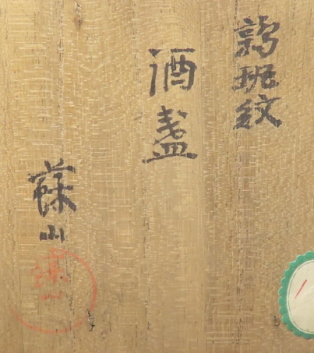 鶉斑紋
酒盞
蘇山